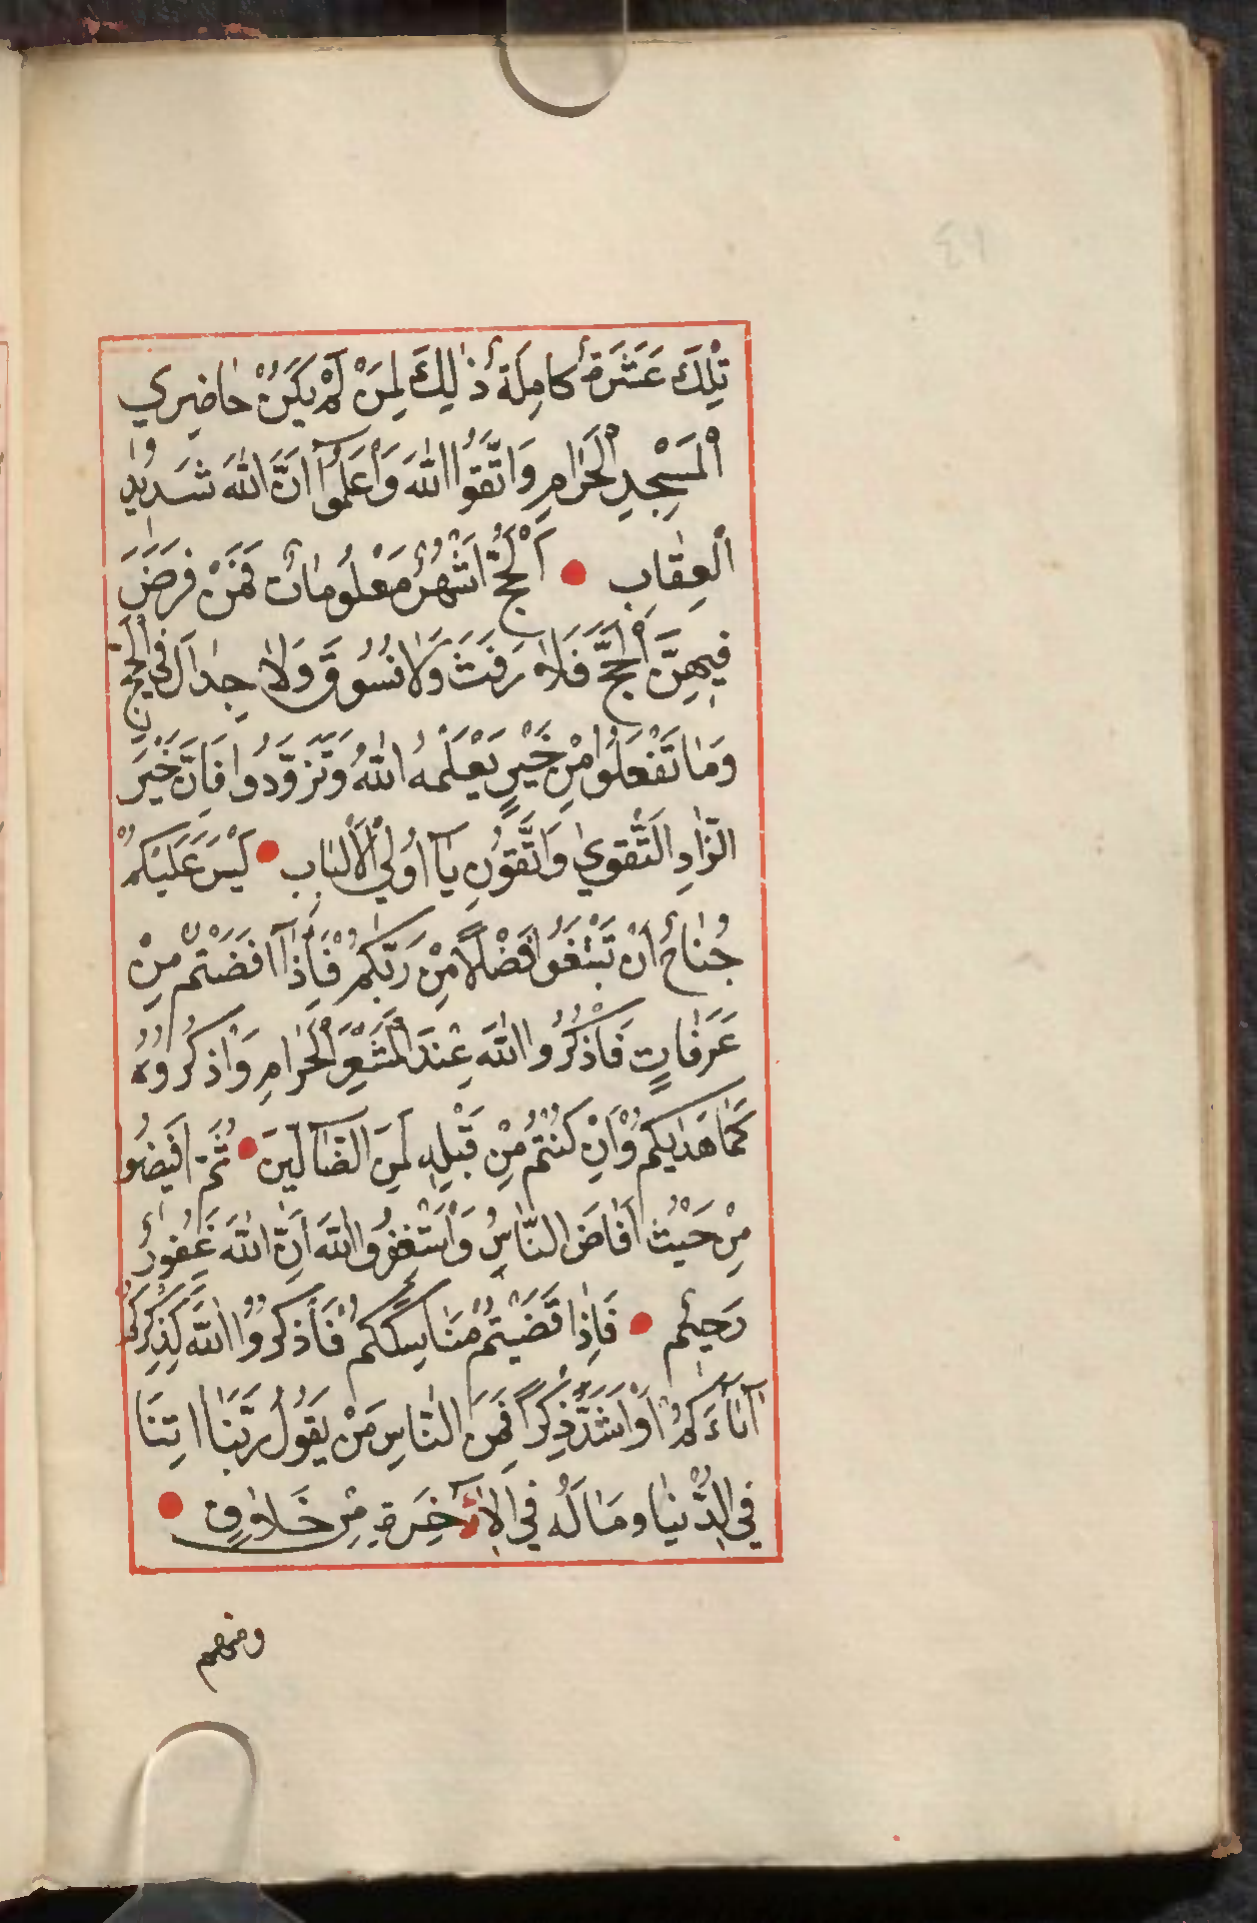 تِلْكَ عَشَرَةٌ كَامِلَةٌ ذٰلِكَ لِمَنْ لَمْ يَكُنْ حَاضِرِي
الْمَسْجِدِ الْحَرَامِ وَاتَّقُوا اللّٰهَ وَاعْلَمُوٓا اَنَّ اللّٰهَ شَدِيدُ
الْعِقَابِ ● اَلْحَجُّ اَشْهُرٌ مَعْلُومَاتٌ فَمَنْ فَرَضَ
فِيهِنَّ الْحَجَّ فَلَا رَفَثَ وَلَا فُسُوقَ وَلَا جِدَالَ فِي الْحَجِّ
وَمَا تَفْعَلُوا مِنْ خَيْرٍ يَعْلَمْهُ اللّٰهُ وَتَزَوَّدُوا فَاِنَّ خَيْرَ
الزَّادِ التَّقْوٰي وَاتَّقُونِ يَآ اُولِي الْاَلْبَابِ ● لَيْسَ عَلَيْكُمْ
جُنَاحٌ اَنْ تَبْتَغُوا فَضْلًا مِنْ رَبِّكُمْ فَاِذَآ اَفَضْتُمْ مِنْ
عَرَفَاتٍ فَاذْكُرُوا اللّٰهَ عِنْدَ الْمَشْعَرِ الْحَرَامِ وَاذْكُرُوهُ
كَمَا هَدٰيكُمْ وَاِنْ كُنْتُمْ مِنْ قَبْلِهِ لَمِنَ الضَّآلِّينَ ● ثُمَّ اَفِيضُوا
مِنْ حَيْثُ اَفَاضَ النَّاسُ وَاسْتَغْفِرُوا اللّٰهَ اِنَّ اللّٰهَ غَفُورٌ
رَحِيمٌ ● فَاِذَا قَضَيْتُمْ مَنَاسِكَكُمْ فَاذْكُرُوا اللّٰهَ كَذِكْرِكُمْ
اٰبَآءَكُمْ اَوْ اَشَدَّ ذِكْرًا فَمِنَ النَّاسِ مَنْ يَقُولُ رَبَّنَا اٰتِنَا
فِي الدُّنْيَا وَمَا لَهُ فِي الْاٰخِرَةِ مِنْ خَلَاقٍ ●
ومنهم